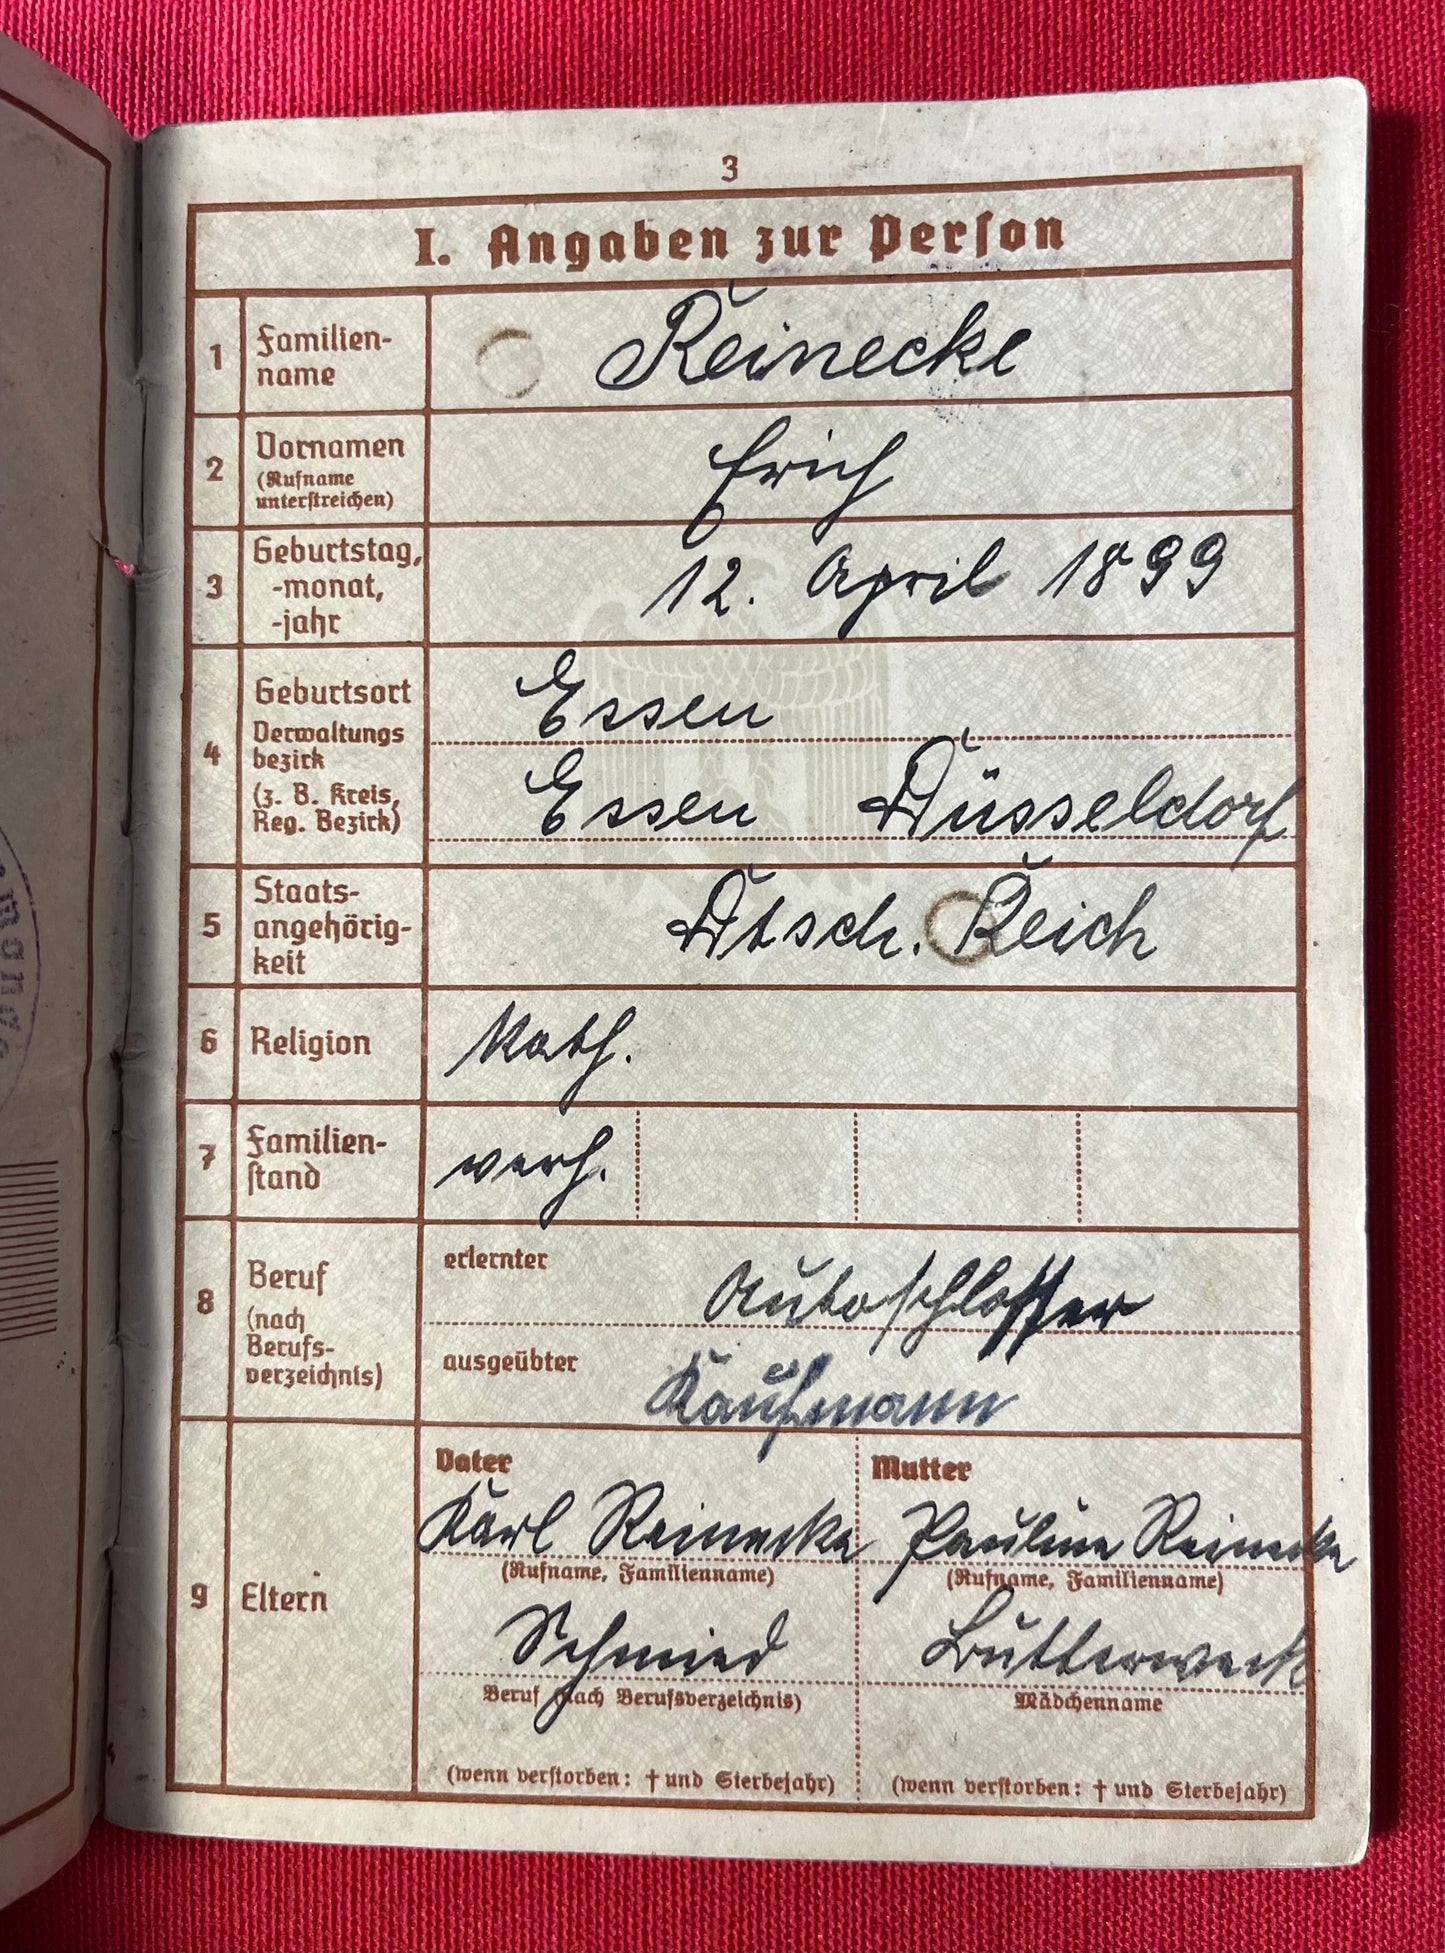 3
I. Angaben zur Person
1 Familien-
name
Reinecke
2 Vornamen
(Rufname
unterstreichen)
Erich
3 Geburtstag,
-monat,
-jahr
12. April 1899
4 Geburtsort
Verwaltungs
bezirk
(z. B. Kreis,
Reg. Bezirk)
Essen
Essen Düsseldorf
5 Staats-
angehörig-
keit
Dtsch. Reich
6 Religion
kath.
7 Familien-
stand
verh.
8 Beruf
(nach
Berufs-
verzeichnis)
erlernter
Autoschlosser
ausgeübter
Kaufmann
9 Eltern
Vater
Karl Reinecke
(Rufname, Familienname)
Schmied
Beruf (nach Berufsverzeichnis)
(wenn verstorben: † und Sterbejahr)
Mutter
Pauline Reinecke
(Rufname, Familienname)
Butterweck
Mädchenname
(wenn verstorben: † und Sterbejahr)